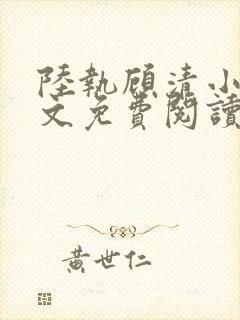 陸執顧清小
文免費閱讀
黃世仁